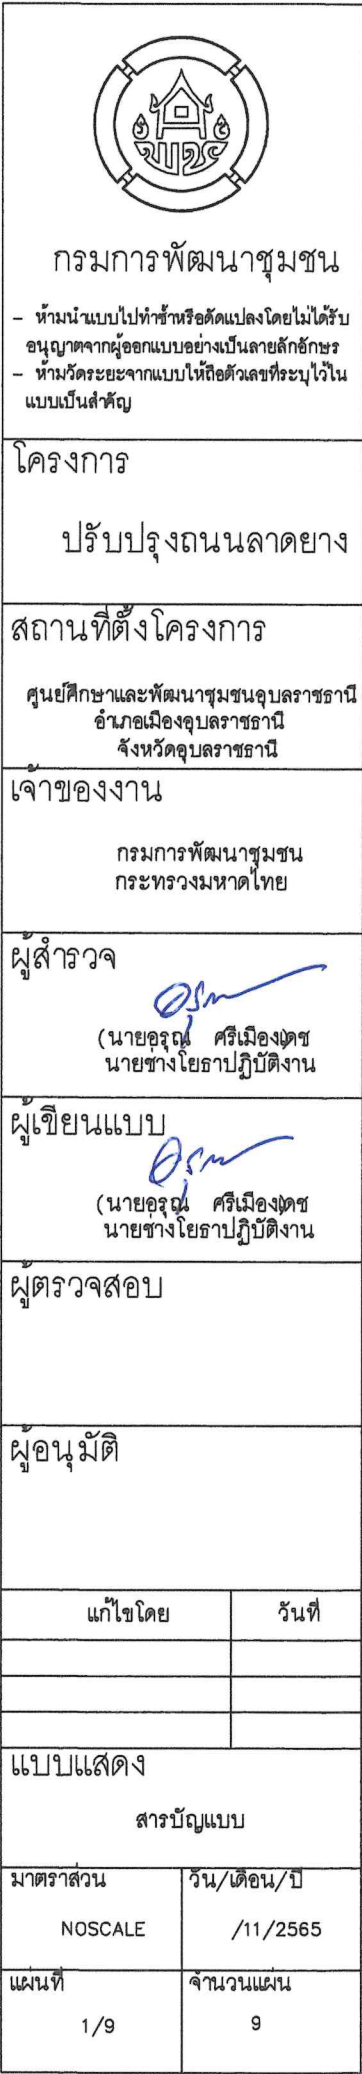 พช
กรมการพัฒนาชุมชน
- ห้ามนำแบบไปทำซ้ำหรือดัดแปลงโดยไม่ได้รับ
อนุญาตจากผู้ออกแบบอย่างเป็นลายลักอักษร
- ห้ามวัดระยะจากแบบให้ถือตัวเลขที่ระบุไว้ใน
แบบเป็นสำคัญ
โครงการ
ปรับปรุงถนนลาดยาง
สถานที่ตั้งโครงการ
ศูนย์ศึกษาและพัฒนาชุมชนอุบลราชธานี
อำเภอเมืองอุบลราชธานี
จังหวัดอุบลราชธานี
เจ้าของงาน
กรมการพัฒนาชุมชน
กระทรวงมหาดไทย
ผู้สำรวจ
(นายอรุณ ศรีเมืองเดช)
นายช่างโยธาปฏิบัติงาน
ผู้เขียนแบบ
(นายอรุณ ศรีเมืองเดช)
นายช่างโยธาปฏิบัติงาน
ผู้ตรวจสอบ
ผู้อนุมัติ
แก้ไขโดย วันที่
แบบแสดง
สารบัญแบบ
มาตราส่วน วัน/เดือน/ปี
NOSCALE /11/2565
แผ่นที่ จำนวนแผ่น
1/9 9